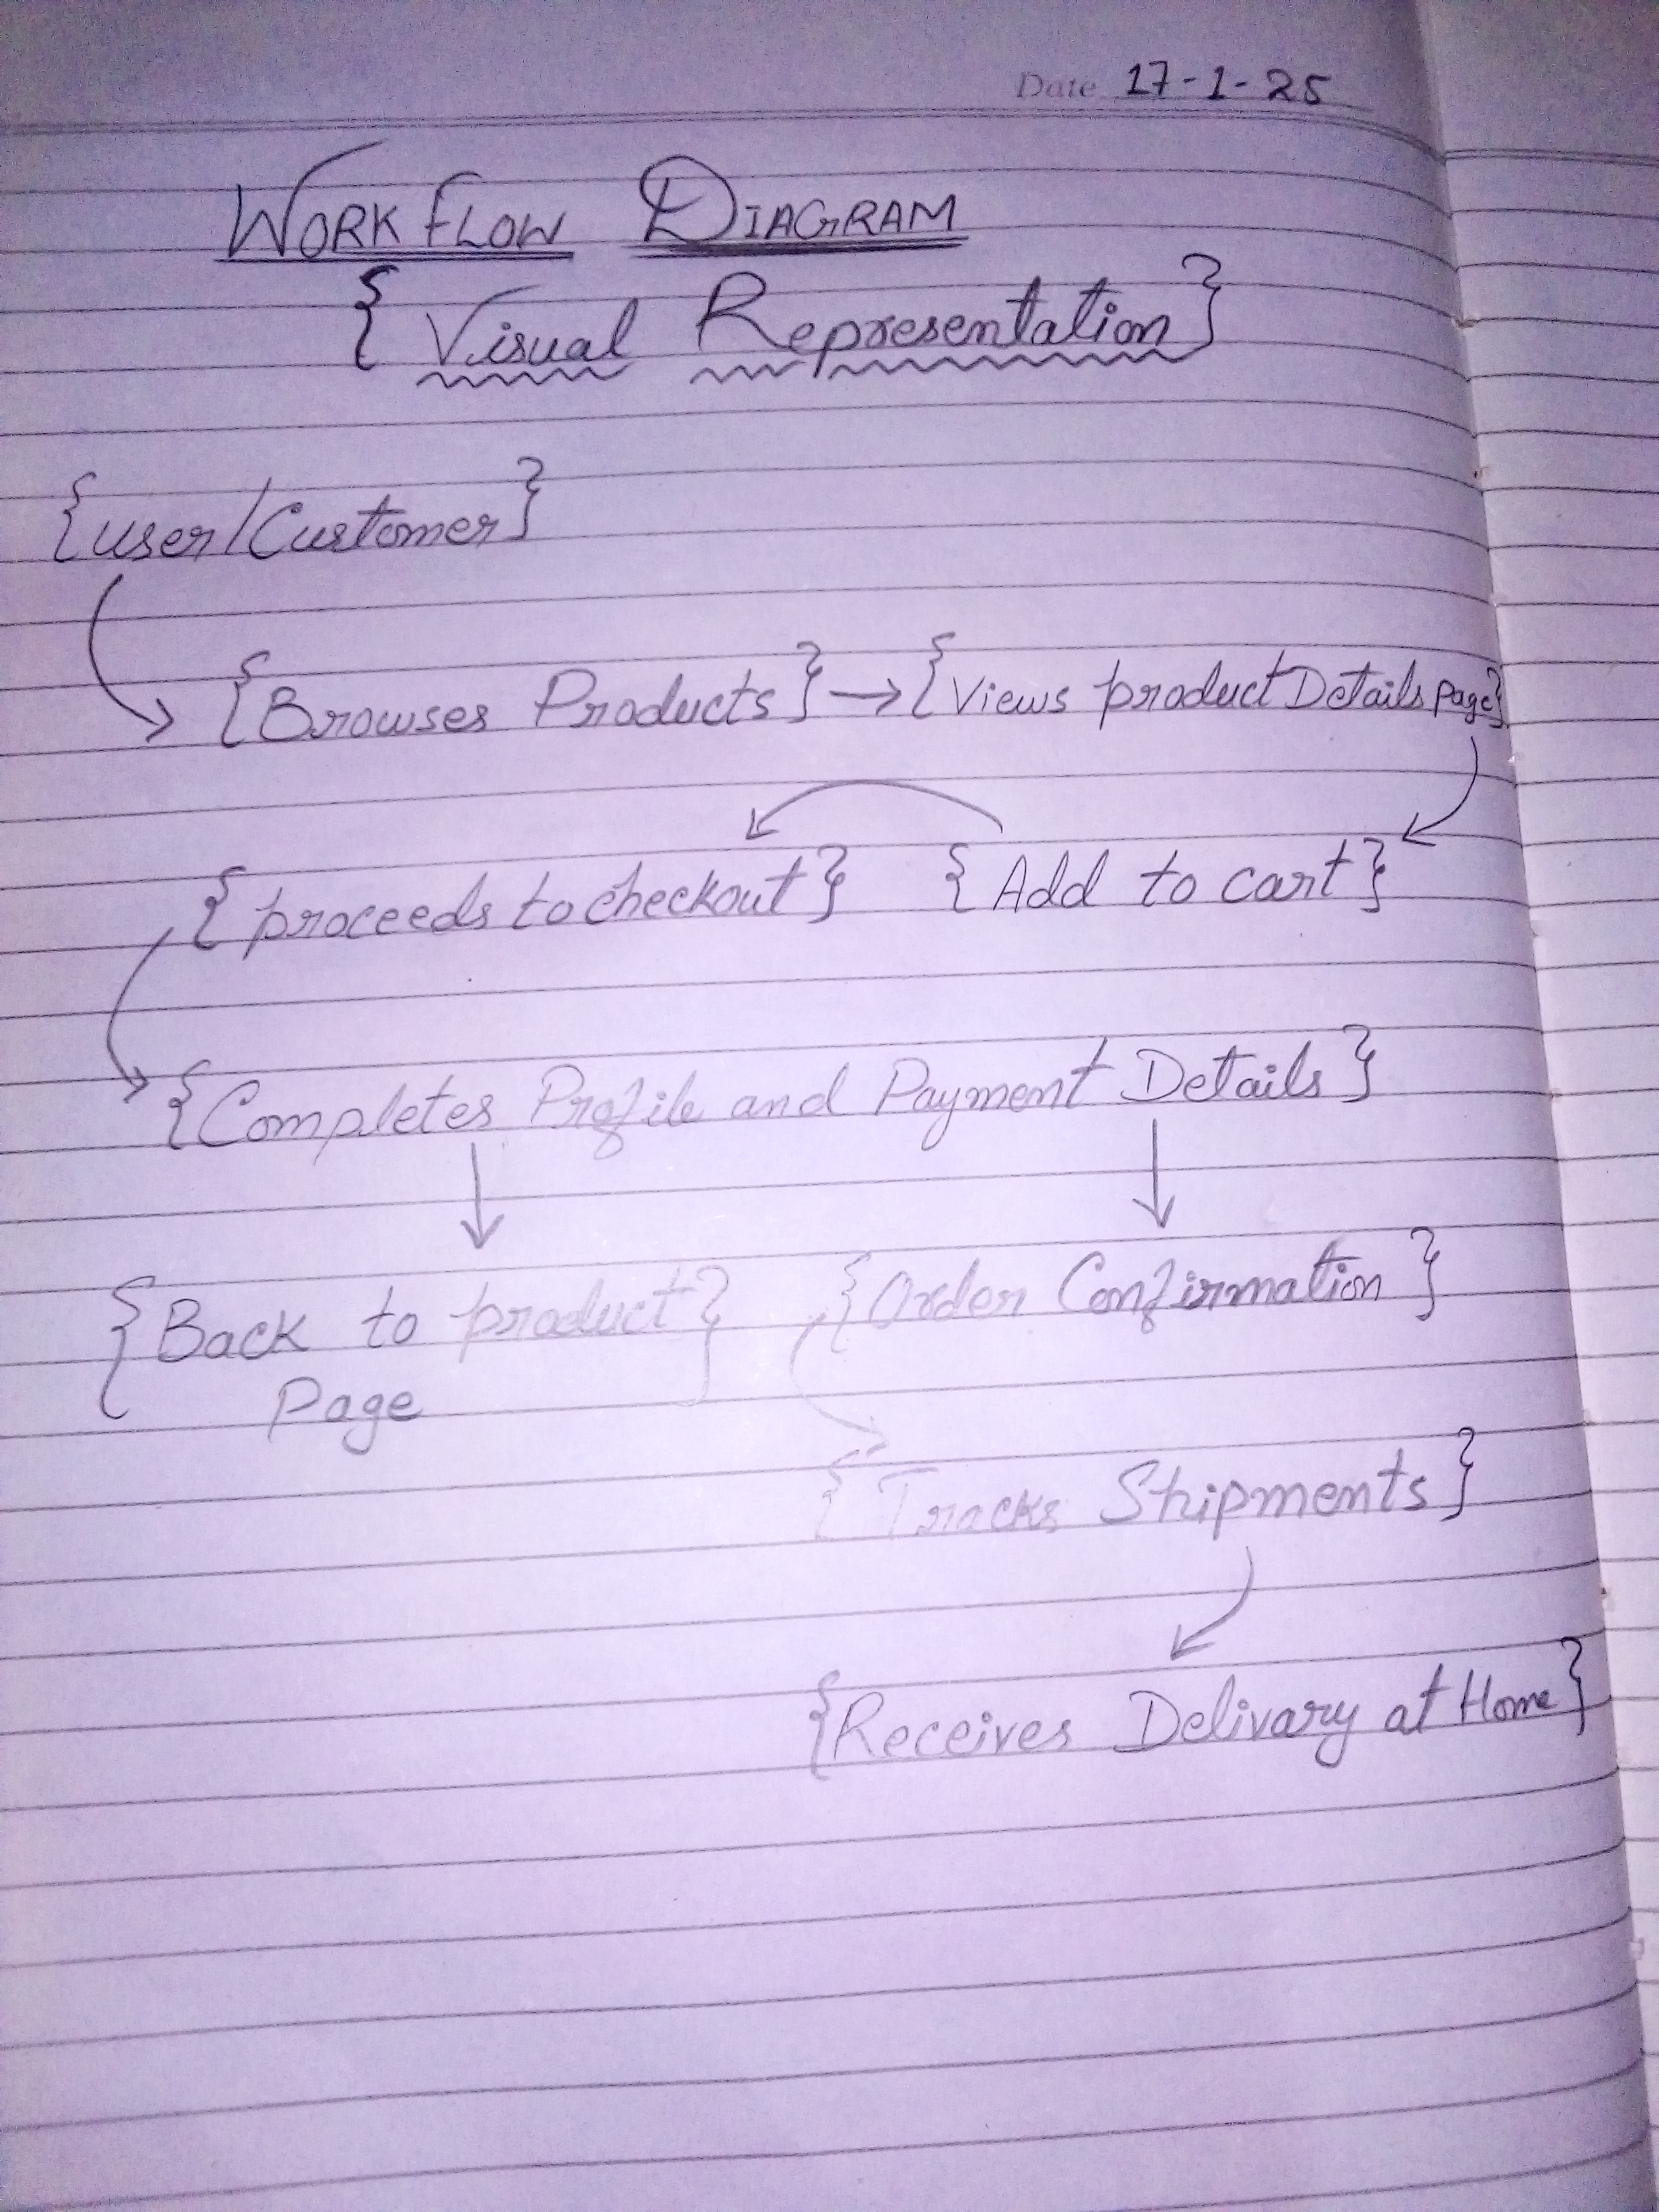 Date 17-1-25
WORK FLOW DIAGRAM
{ Visual Representation }
{user/Customer}
{Browses Products} → {Views product Details page}
{proceeds to checkout} {Add to cart}
{Completes Profile and Payment Details}
{Back to product {Order Confirmation}
Page }
{Tracks Shipments}
{Receives Delivary at Home}